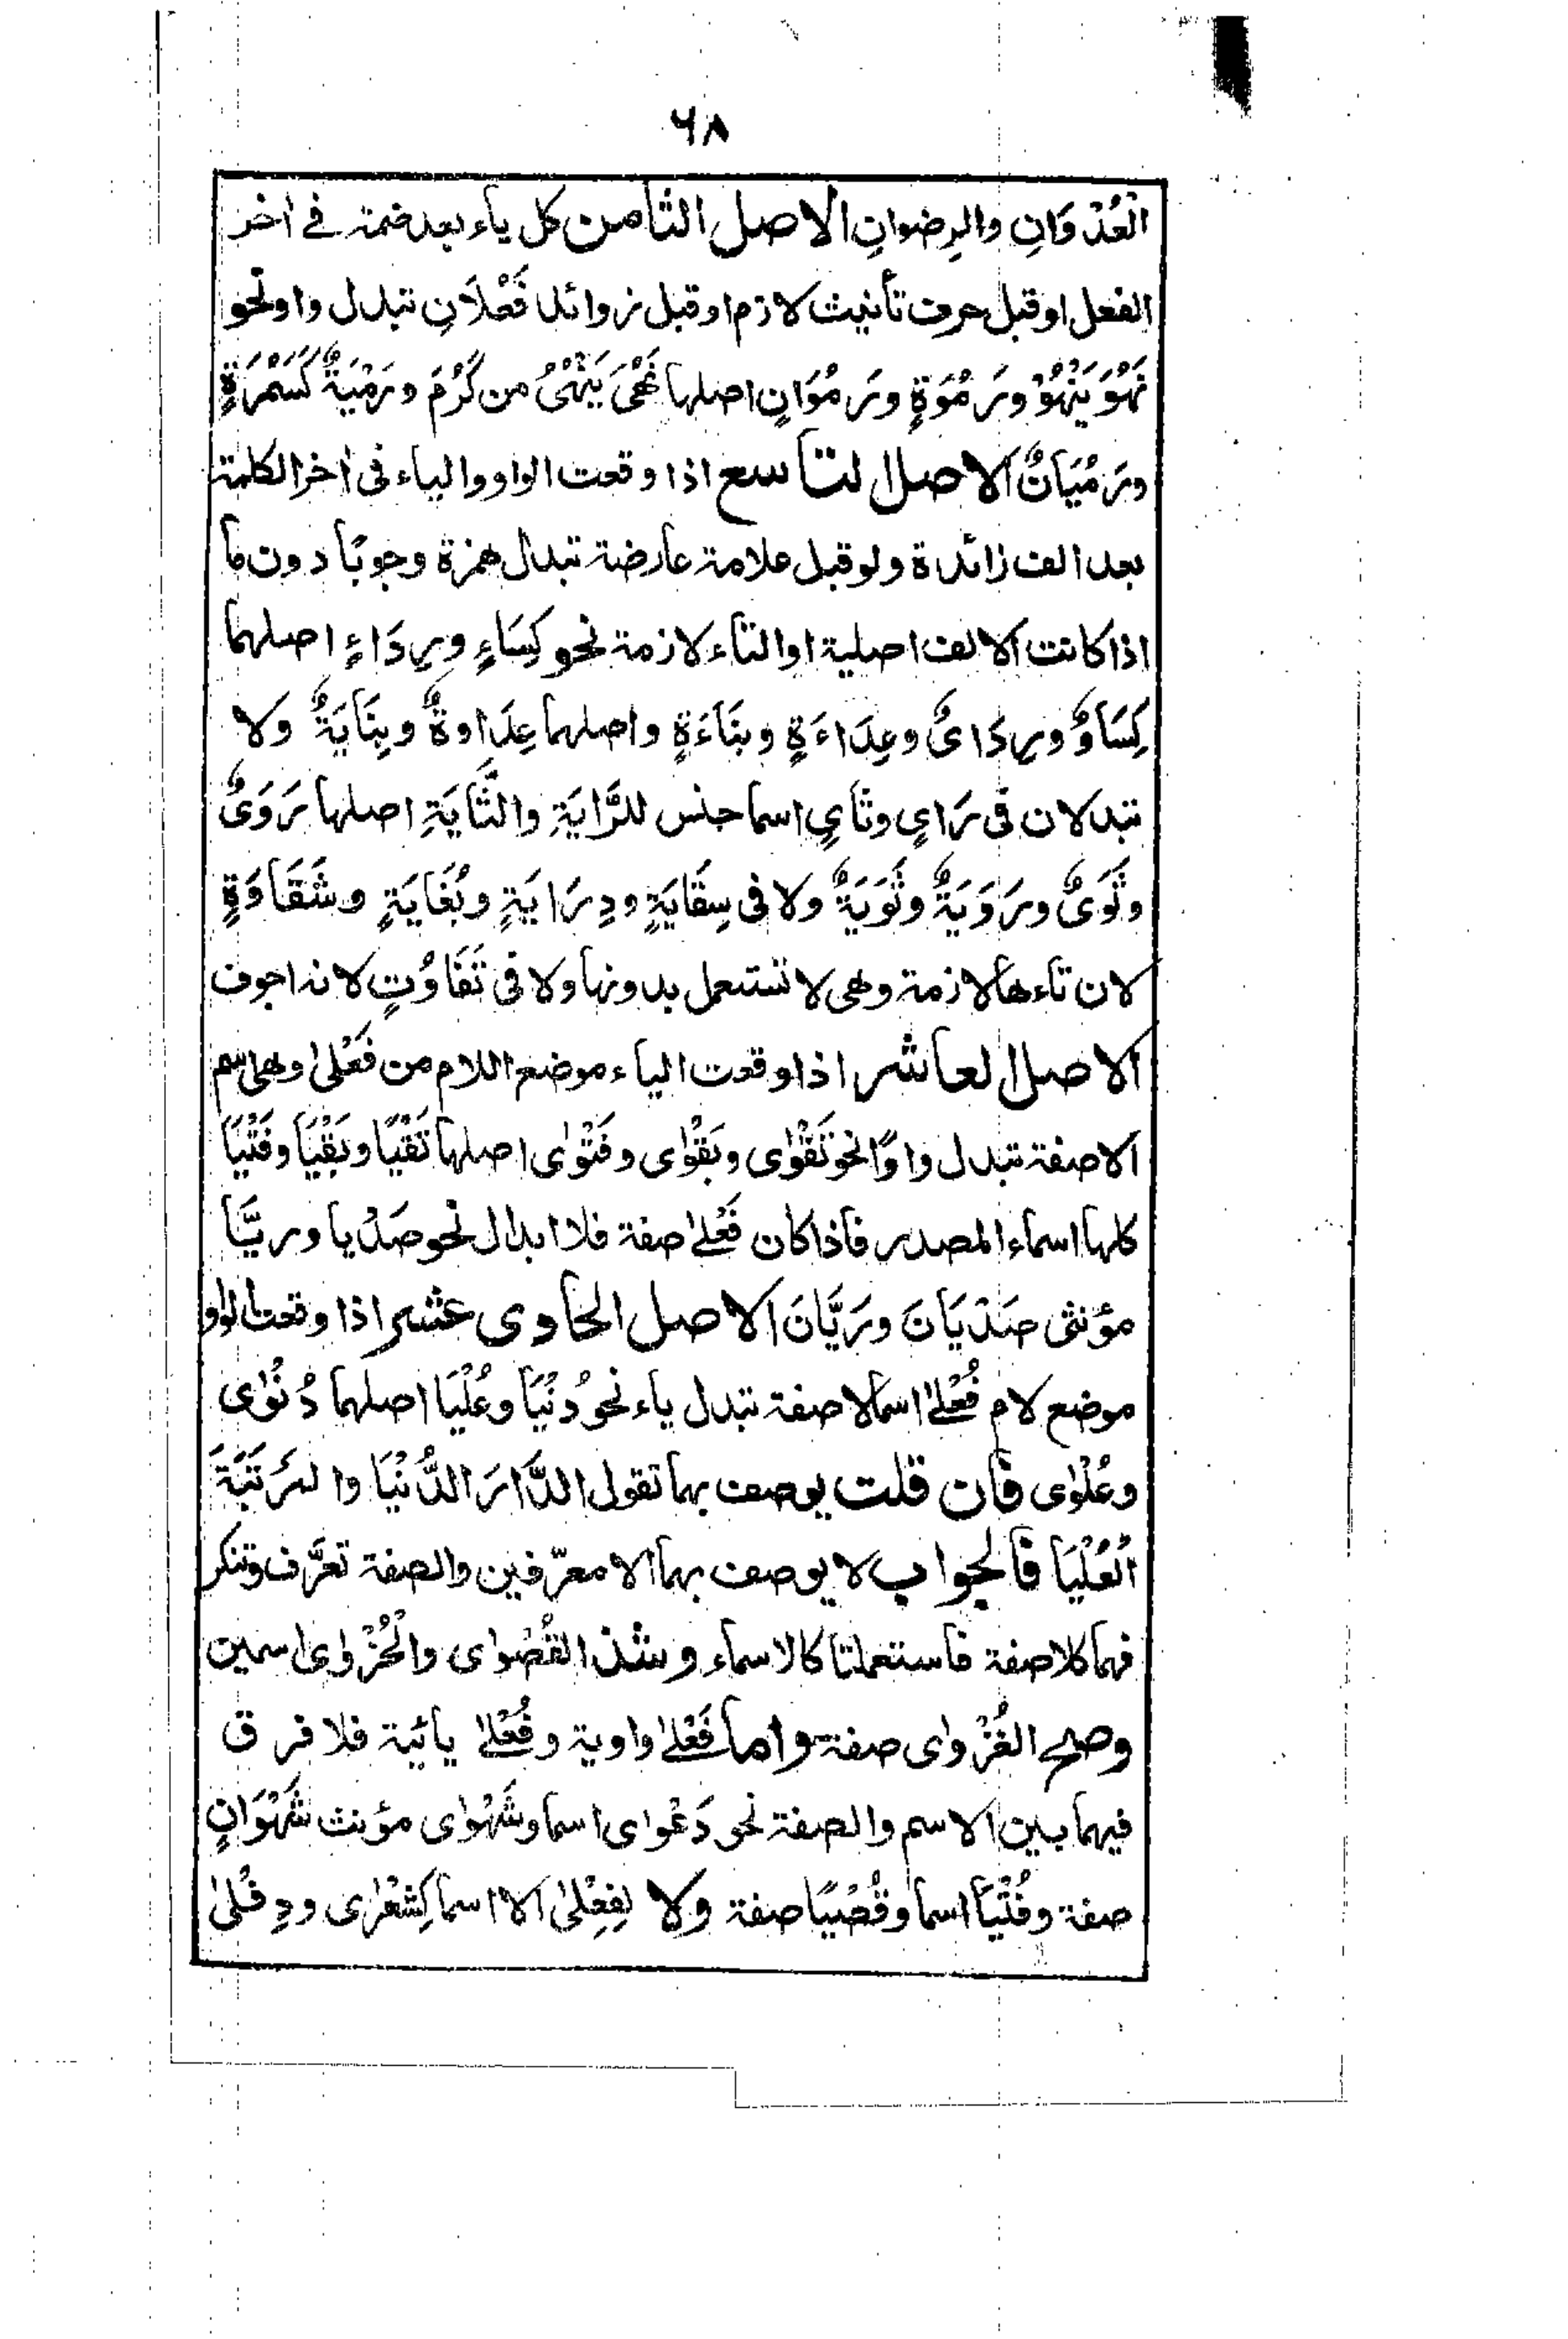 ۶۸
الْعُدْوَانِ والرِضوانِ الاصل الثامن كل ياء بعد ضمة فے اخر
الفعل او قبل حرف تأنيث لازم او قبل زوائد فَعْلَانِ تبدل واو نحو
نَهُوَ يَنْهُوْ ورَمُوَةٍ ورَمُوَانٍ اصلها نَهُىَ يَنْهُىُ من كَرُمَ ورَمُيَةٌ كَسَمُرَةٍ
ورَمُيَانٌ الاصل التاسع اذا وقعت الواو والياء فى اخر الكلمة
بعد الف زائدة ولو قبل علامة عارضة تبدل همزة وجوبًا دون ما
اذا كانت الالف اصلية او التاء لازمة نحو كِسَاءٍ ورِدَاءٍ اصلهما
كِسَاوٌ ورِدَاىٌ وعِدَاءَةٍ وبِنَاءَةٍ واصلهما عِدَاوةٌ وبِنَايَةٌ ولا
تبدلان فى رَاىٍ وثَاىٍ اسما جنس للرَّايَةِ والثَّايَةِ اصلها رَوَىٌ
وثَوَىٌ ورَوَيَةٌ وثَوَيَةٌ ولا فى سِقَايَةٍ ودِرَايَةٍ وبُغَايَةٍ وشَقَاوَةٍ
لان تاءها لازمة وهى لا تستعمل بدونها ولا فى تَفَاوُتٍ لانه اجوف
الاصل العاشر اذا وقعت الياء موضع اللام من فَعْلىٰ وهى اسم
لا صفة تبدل واوًا نحو تَقْوٰى وبَقْوٰى وفَتْوٰى اصلها تَقْيَا وبَقْيَا وفَتْيَا
كلها اسماء المصدر فاذا كان فَعْلےٰ صفة فلا ابدال نحو صَدْيا وريَّا
مؤنثى صَدْيَانَ ورَيَّانَ الاصل الحادى عشر اذا وقعت الواو
موضع لام فُعْلےٰ اسما لا صفة تبدل ياء نحو دُنْيَا وعُلْيَا اصلهما دُنْوٰى
وعُلْوٰى فان قلت يوصف بهما تقول الدَّارَ الدُّنْيَا والمَرْتَبَةَ
الْعُلْيَا فالجواب لا يوصف بهما الا معرّفين والصفة تعرَّف وتنكر
فهما كلا صفة فاستعملتا كالاسماء وشذ القُصْوٰى والْحُزْوٰى اسمين
وصح الغُزْوٰى صفة واما فَعْلےٰ واوية وفُعْلےٰ يائية فلا فرق
فيهما بين الاسم والصفة نحو دَعْوٰى اسما وشَهْوٰى مؤنث شَهْوَانٍ
صفة وفُتْيَا اسما وقُصْيَا صفة ولا لِفِعْلىٰ الا اسما كِشِعْرٰى ودِفْلىٰ